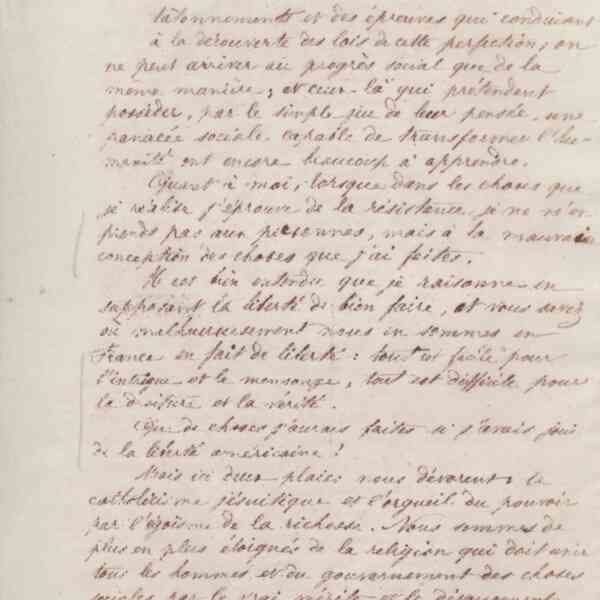 tâtonnements et des épreuves qui conduisent
à la découverte des lois de cette perfection, on
ne peut arriver au progrès social que de la
même manière; et ceux-là qui prétendent
posséder, par le simple jeu de leur pensée, une
panacée sociale capable de transformer l'hu-
manité ont encore beaucoup à apprendre.
Quant à moi, lorsque dans les choses que
je réalise j'éprouve de la résistance, je ne m'en
prends pas aux personnes, mais à la mauvaise
conception des choses que j'ai faites.
Il est bien entendu que je raisonne en
supposant la liberté de bien faire, et vous savez
où malheureusement nous en sommes en
France en fait de liberté: tout est facile pour
l'intrigue et le mensonge, tout est difficile pour
la droiture et la vérité.
Que de choses j'aurais faites si j'avais joui
de la liberté américaine!
Mais ici deux plaies nous dévorent: le
catholicisme jésuitique et l'orgueil du pouvoir
par l'égoïsme de la richesse. Nous sommes de
plus en plus éloignés de la religion qui doit unir
tous les hommes et du gouvernement des choses
sociales par le vrai mérite et le dévouement